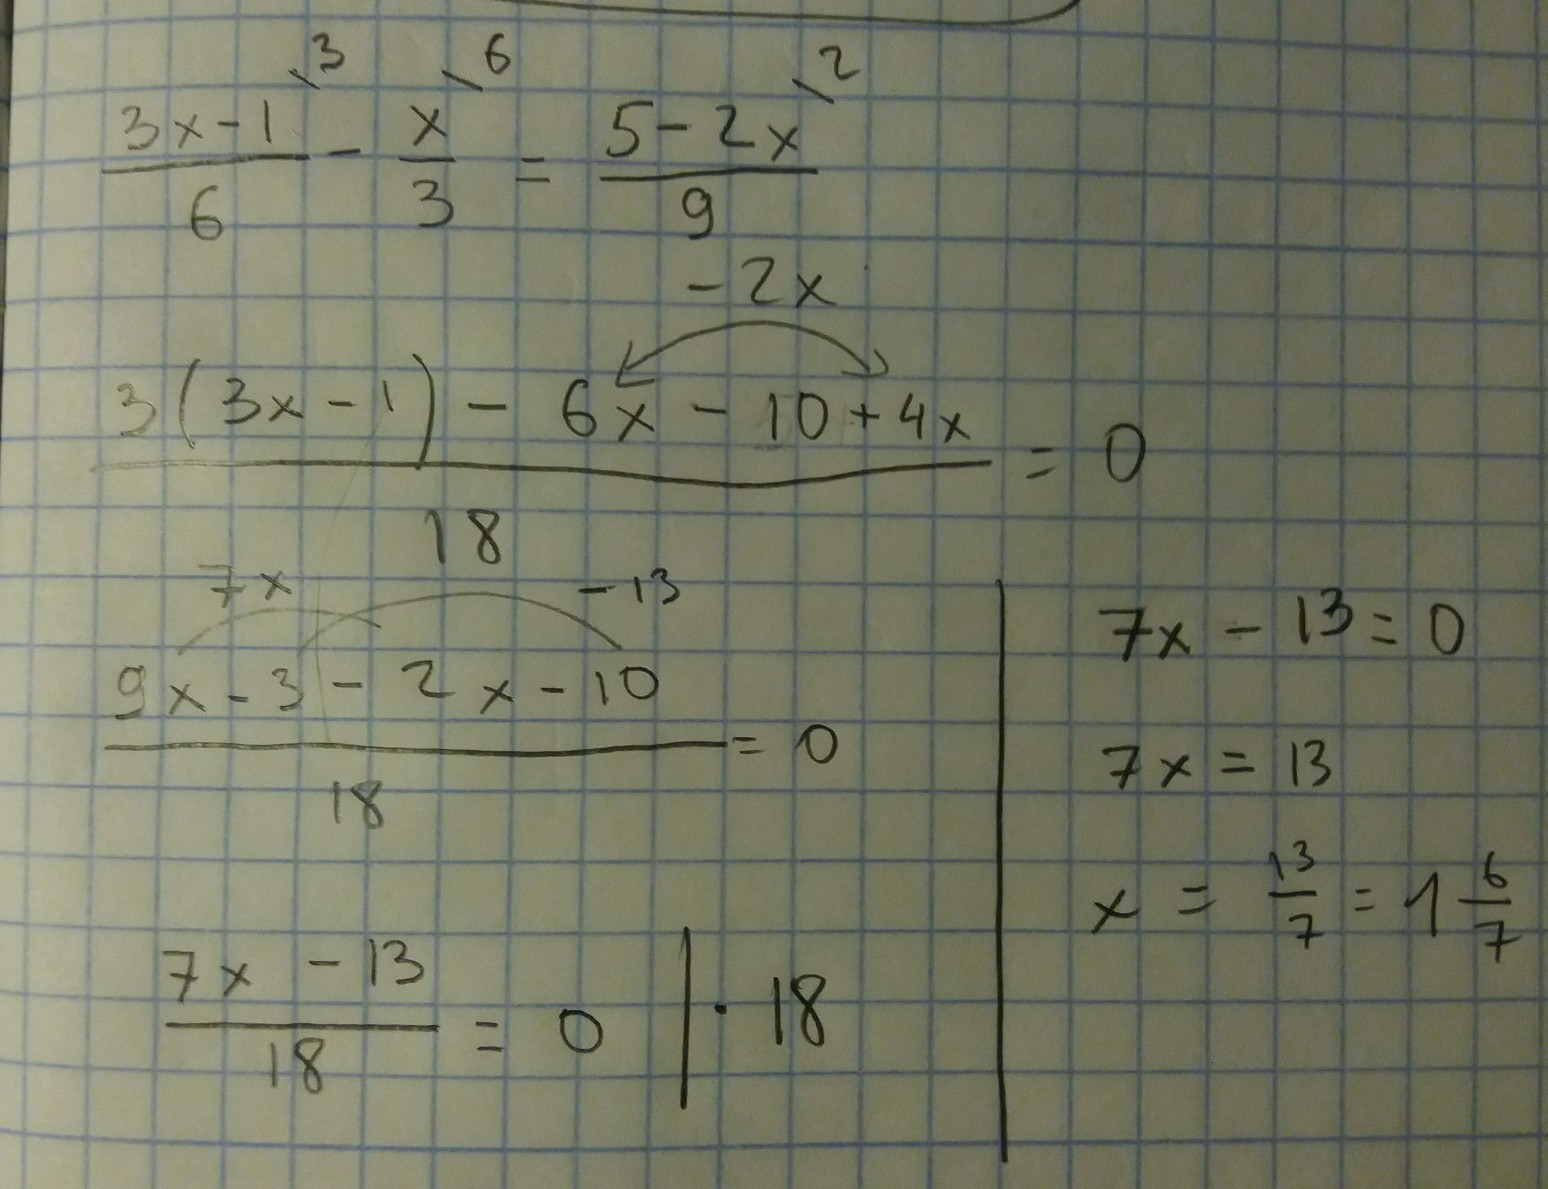 \3 \6 \2
(3x-1)/6 - x/3 = (5-2x)/9
-2x
(3(3x-1) - 6x - 10 + 4x)/18 = 0
7x -13
(9x-3-2x-10)/18 = 0
(7x - 13)/18 = 0 | · 18
7x - 13 = 0
7x = 13
x = 13/7 = 1 6/7